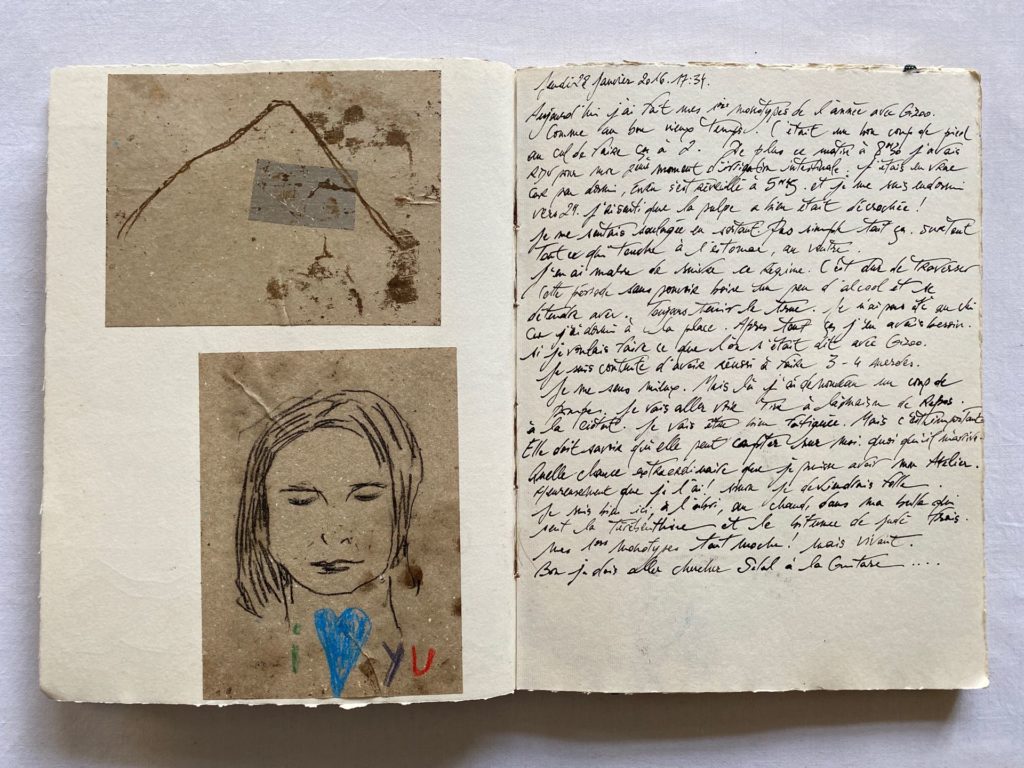 i yu
Jeudi 28 Janvier 2016. 17:34.
Aujourd'hui j'ai fait mes 1ers monotypes de l'année avec Gizoo.
Comme au bon vieux temps. C'était un bon coup de pied
au cul de faire ça à 2. De plus ce matin à j'avais
RDV pour mon moment d' intestinale. J'étais en vrac
car pas dormi, s'est réveillé à et je me suis endormi
vers 24. que la a bien était décrochée!
Je me sentais soulagée en sortant. Pas simple tout ça. surtout
tout ce qui touche à l'estomac, au ventre.
J'en ai marre de suivre ce Régime. C'est dur de traverser
cette période sans pouvoir boire un peu d'alcool et se
détendre avec. Toujours tenir le Je n'ai pas été au
car j'ai dormi à la place. Après tout ça j'en avais besoin.
si je voulais faire ce que l'on s'était dit avec Gizoo.
Je suis contente d'avoir réussi à faire 3-4 merdes.
Je me sens mieux. Mais là j'ai de nouveau un coup de
pompe. Je vais aller voir à la maison de Repos
à la Ciotat. Je vais être bien fatiguée. Mais c'est important
Elle doit savoir qu'elle peut compter sur moi. quoi qu'il m'arrive.
Quelle chance extraordinaire que je puisse avoir mon Atelier.
Heureusement que je l'ai! sinon je deviendrais folle.
Je suis bien ici, à l'abri, au chaud, dans ma bulle qui
sent la Thérébenthine et le bitume de judé frais.
Mes 1ers monotypes tout moche! mais vivant.
Bon je dois aller chercher Solal à la Guitare ....